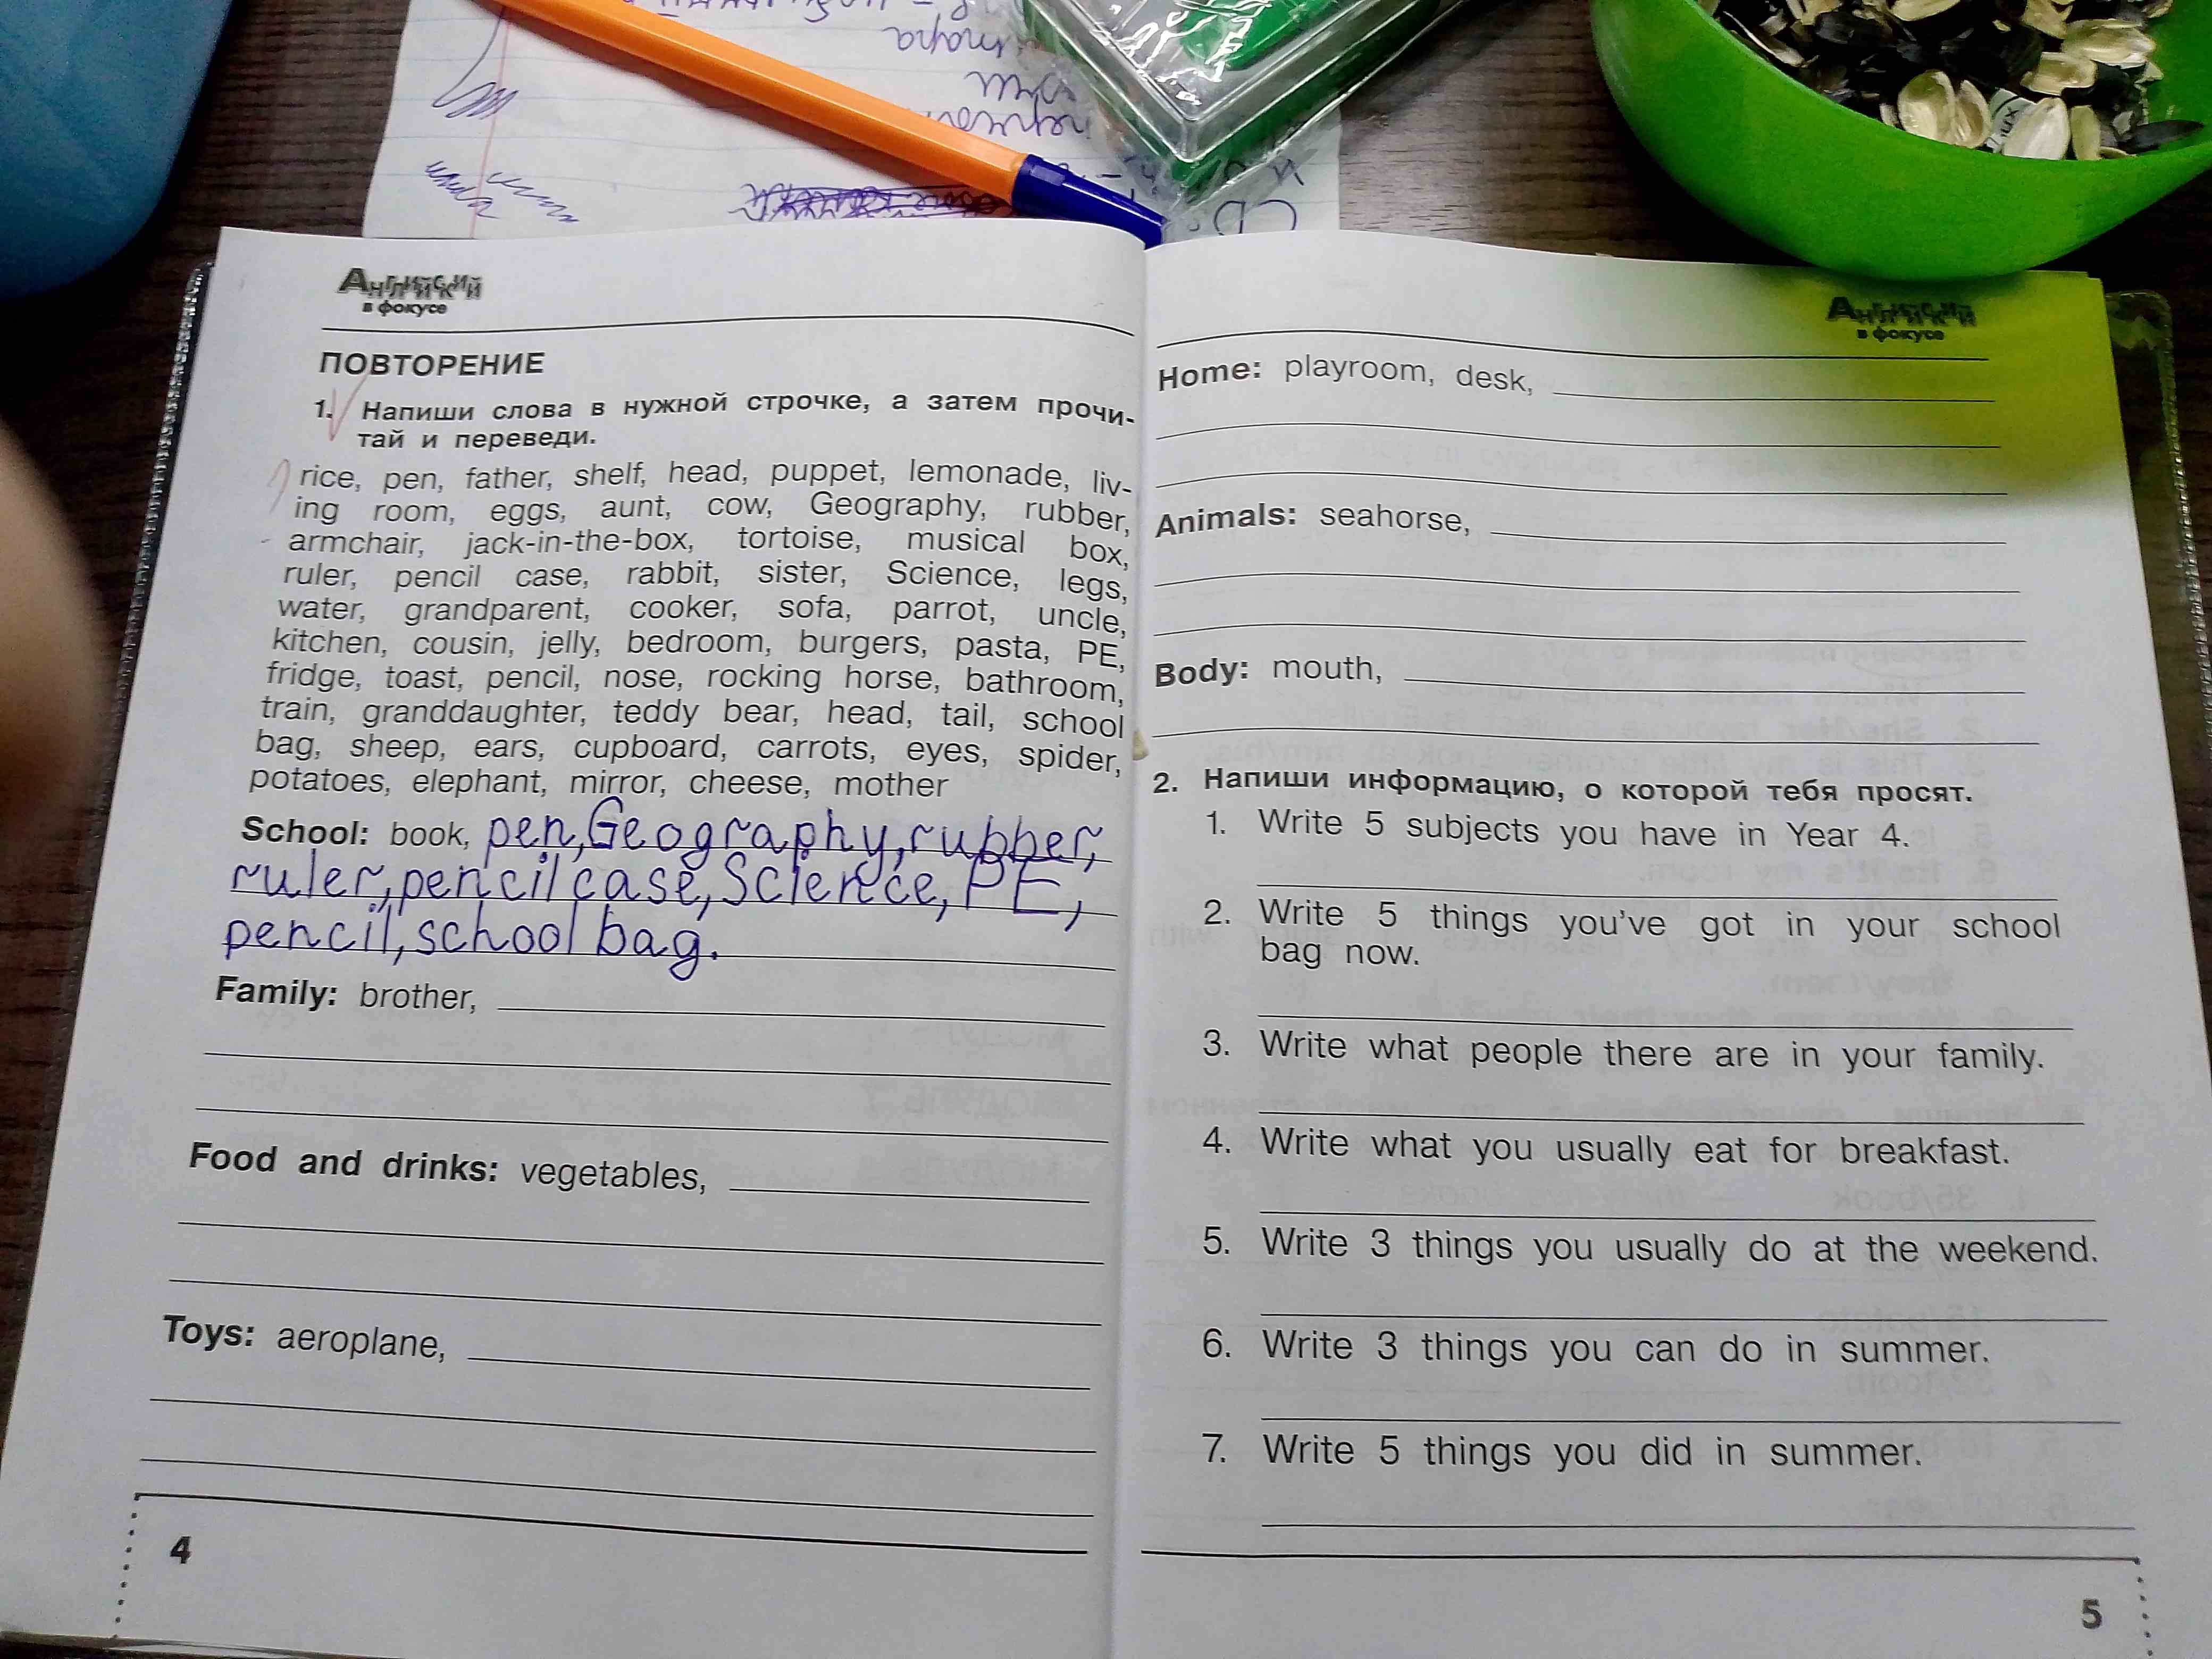 тара
АНГЛИЙСКИЙ
в фокусе
ПОВТОРЕНИЕ
1. Напиши слова в нужной строчке, а затем прочи-
тай и переведи.
rice, pen, father, shelf, head, puppet, lemonade, liv-
ing room, eggs, aunt, cow, Geography, rubber,
armchair, jack-in-the-box, tortoise, musical box,
ruler, pencil case, rabbit, sister, Science, legs,
water, grandparent, cooker, sofa, parrot, uncle,
kitchen, cousin, jelly, bedroom, burgers, pasta, PE,
fridge, toast, pencil, nose, rocking horse, bathroom,
train, granddaughter, teddy bear, head, tail, school
bag, sheep, ears, cupboard, carrots, eyes, spider,
potatoes, elephant, mirror, cheese, mother
School: book, pen, Geography, rubber,
ruler, pencil case, Science, PE,
pencil, school bag.
Family: brother,
Food and drinks: vegetables,
Toys: aeroplane,
4
АНГЛИЙСКИЙ
в фокусе
Home: playroom, desk,
Animals: seahorse,
Body: mouth,
2. Напиши информацию, о которой тебя просят.
1. Write 5 subjects you have in Year 4.
2. Write 5 things you've got in your school
bag now.
3. Write what people there are in your family.
4. Write what you usually eat for breakfast.
5. Write 3 things you usually do at the weekend.
6. Write 3 things you can do in summer.
7. Write 5 things you did in summer.
5